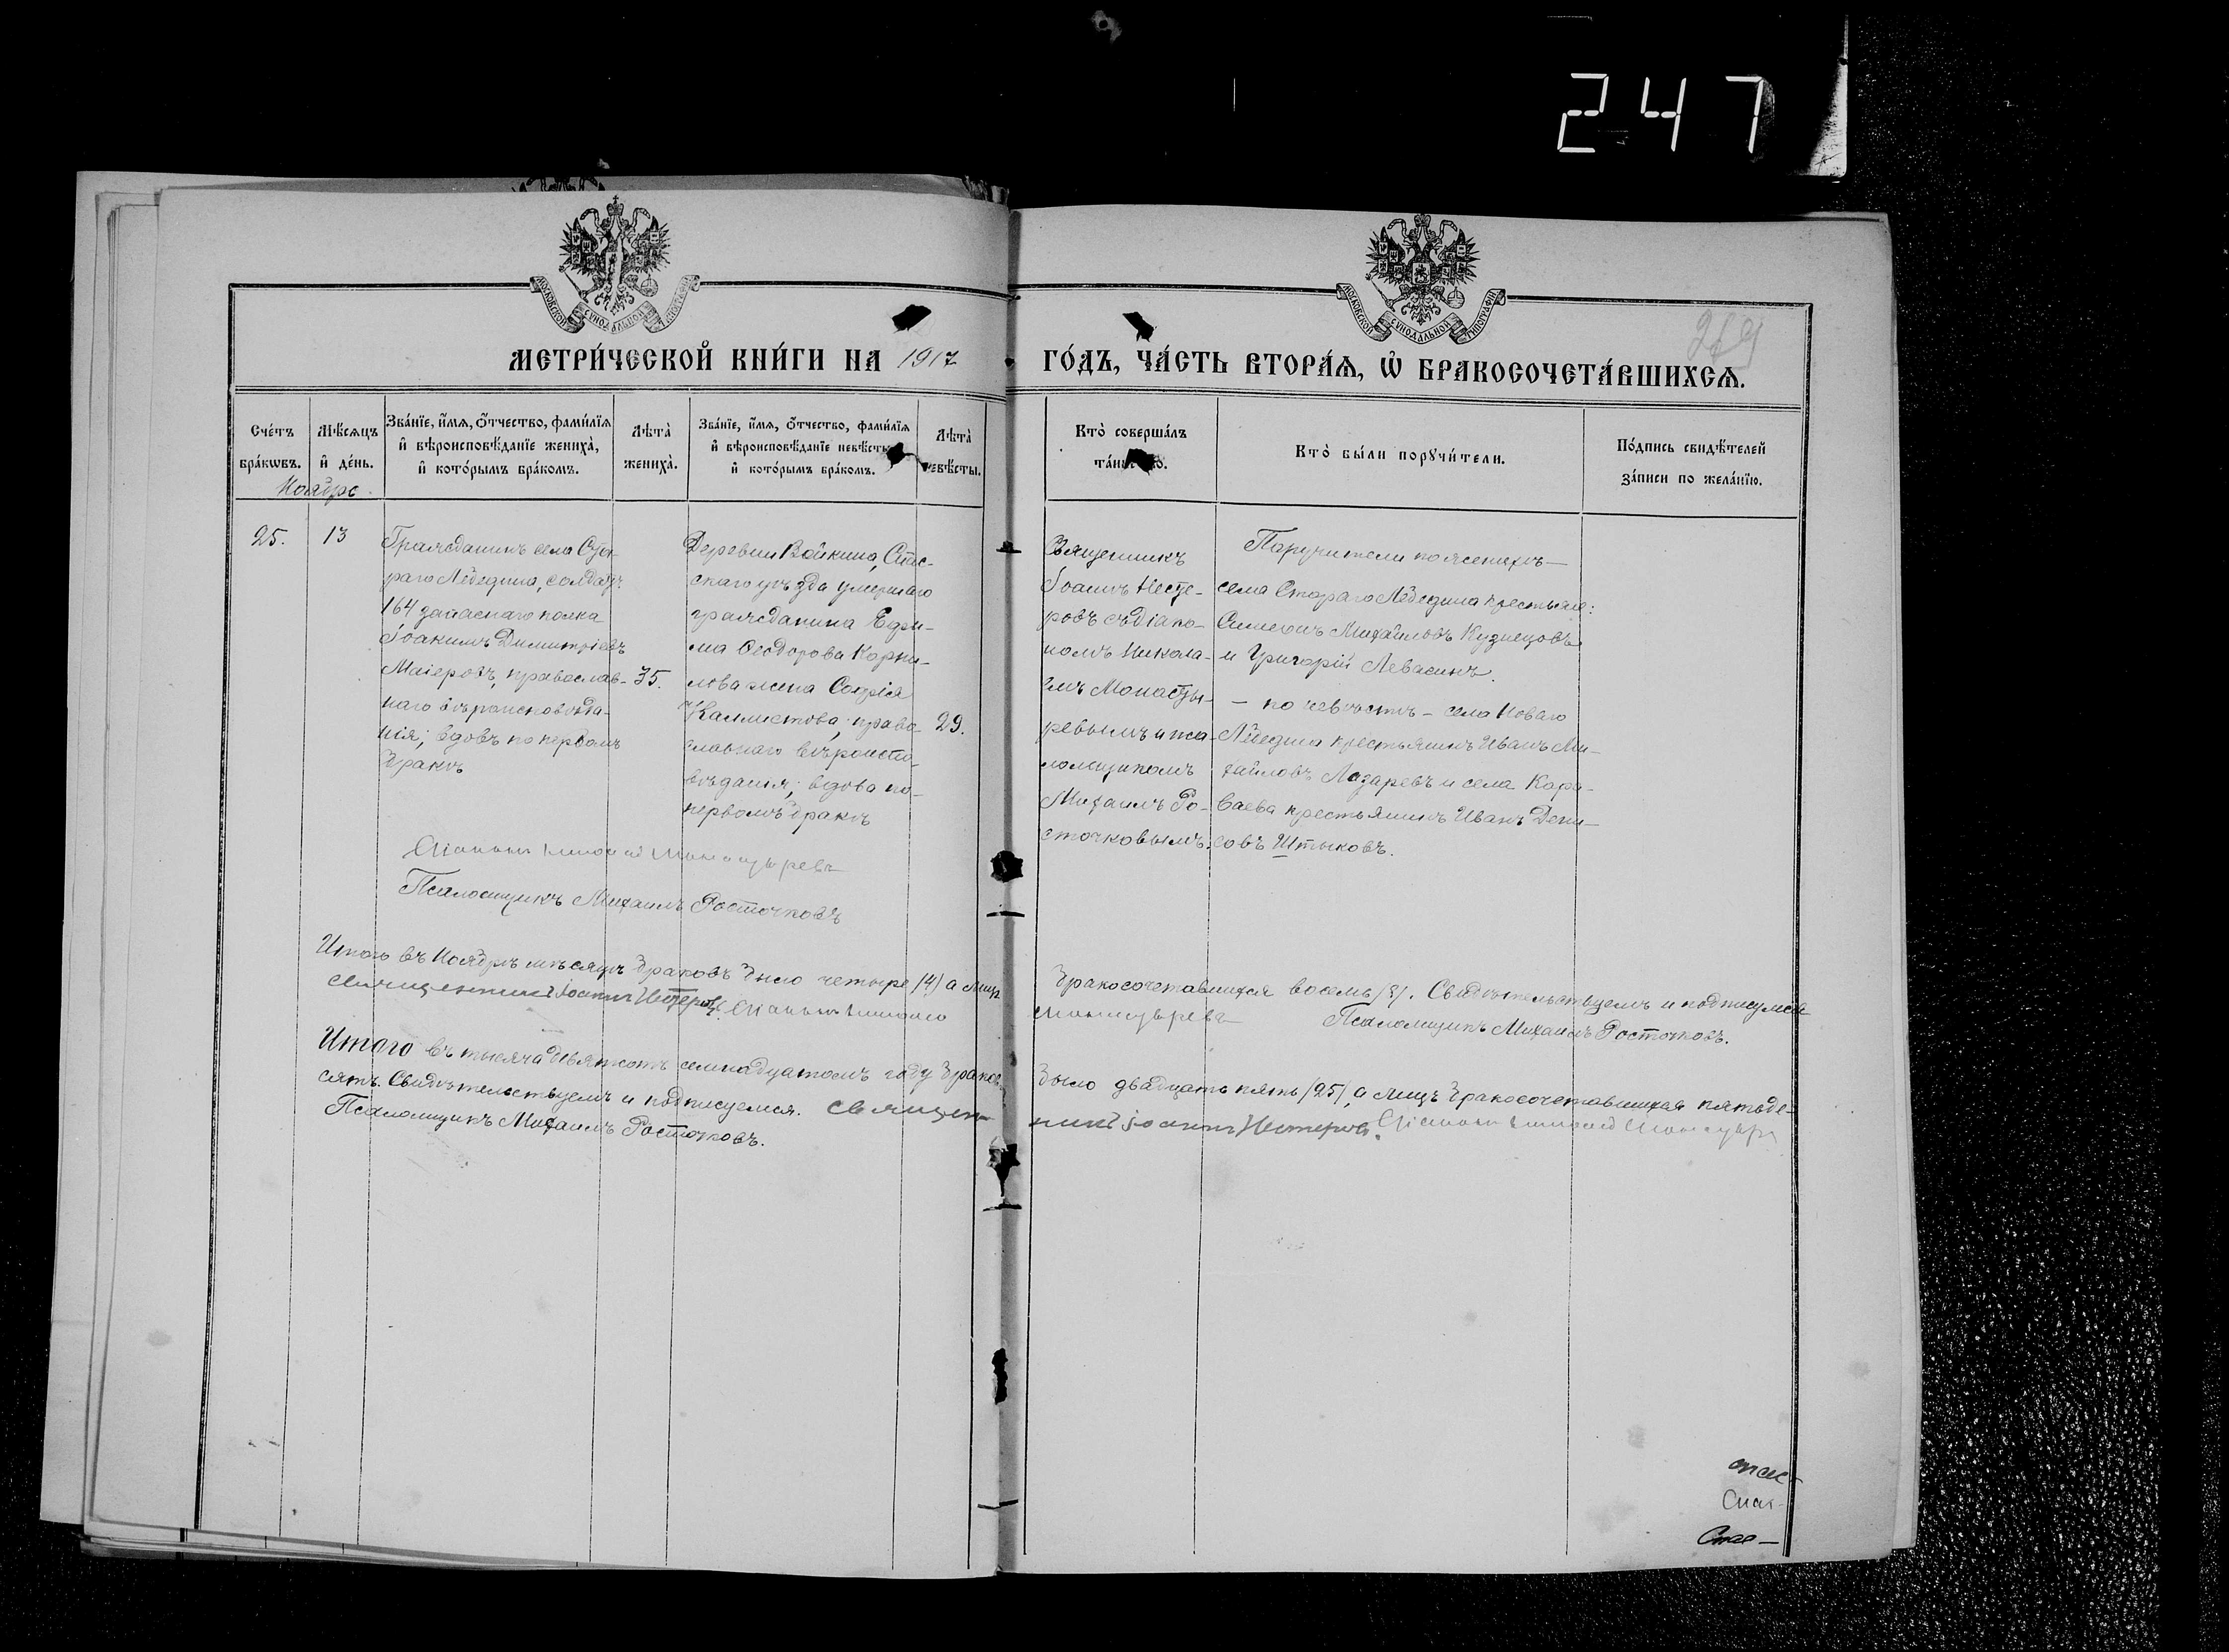 247
МОСКОВСКОЙ СУНОДАЛЬНОЙ ТИПОГРАФІИ
МОСКОВСКОЙ СУНОДАЛЬНОЙ ТИПОГРАФІИ
МЕТРИ́ЧЕСКОЙ КНИ́ГИ НА 1917
ГО́ДЪ, ЧА́СТЬ ВТОРА́Ѧ, Ѡ҆ БРАКОСОЧЕТА́ВШИХСѦ.
Сче́тъ
бра́кѡвъ.
Мѣ́сѧцъ
и҆ де́нь.
Ноябрь.
Зва́нїе, и҆́мѧ, о҆́тчество, фами́лїѧ
и҆ вѣроисповѣ́данїе жениха̀,
и҆ кото́рымъ бра́комъ.
Лѣта̀
жениха̀.
Зва́нїе, и҆́мѧ, о҆́тчество, фами́лїѧ
и҆ вѣроисповѣ́данїе невѣ́сты
и҆ кото́рымъ бра́комъ.
Лѣта̀
невѣ́сты.
Кто̀ соверша́лъ
та́инство.
Кто̀ бы́ли порꙋчи́тели.
По́дпись свидѣ́телей
за́писи по жела́нїю.
25.
13
Гражданинъ села Ста-
раго Лебедина, солдатъ
164 запаснаго полка
Іоакимъ Димитріевъ
Маіеровъ, православ-
наго вѣроисповѣда-
нія; вдовъ по первомъ
бракѣ
35.
Деревни Войкина, Спас-
скаго уѣзда умершаго
гражданина Ефи-
ма Ѳеодорова Корни-
лова жена Софія
Каллистова; право-
славнаго вѣроиспо-
вѣданія; вдова по
первомъ бракѣ
29.
Священникъ
Іоаннъ Несте-
ровъ съ діако-
номъ Никола-
емъ Монасты-
ревымъ и пса-
ломщикомъ
Михаилъ Ро-
сточковымъ.
Поручители по женихѣ —
села Стараго Лебедина крестьяне:
Симеонъ Михайловъ Кузнецовъ
и Григорій Левасинъ.
— по невѣстѣ — села Новаго
Лебедина крестьянинъ Иванъ Ми-
хайловъ Лазаревъ и села Кара-
ваева крестьянинъ Иванъ Дени-
совъ Штыковъ.
Діаконъ Николай Монастыревъ
Псаломщикъ Михаилъ Росточковъ
Итого въ Ноябрѣ мѣсяцѣ браковъ было четыре /4/ а лицъ
бракосочетавшихся восемь /8/. Свидѣтельствуемъ и подписуемся
Священникъ Іоаннъ Нестеровъ. Діаконъ Николай
Монастыревъ Псаломщикъ Михаилъ Росточковъ.
Итого въ тысяча девятсотъ семнадцатомъ году браковъ
было двадцать пять /25/, а лицъ бракосочетавшихся пятьде-
сятъ. Свидѣтельствуемъ и подписуемся. Священ-
никъ Іоаннъ Нестеровъ. Діаконъ Николай Монастыр
Псаломщикъ Михаилъ Росточковъ.
Спас-